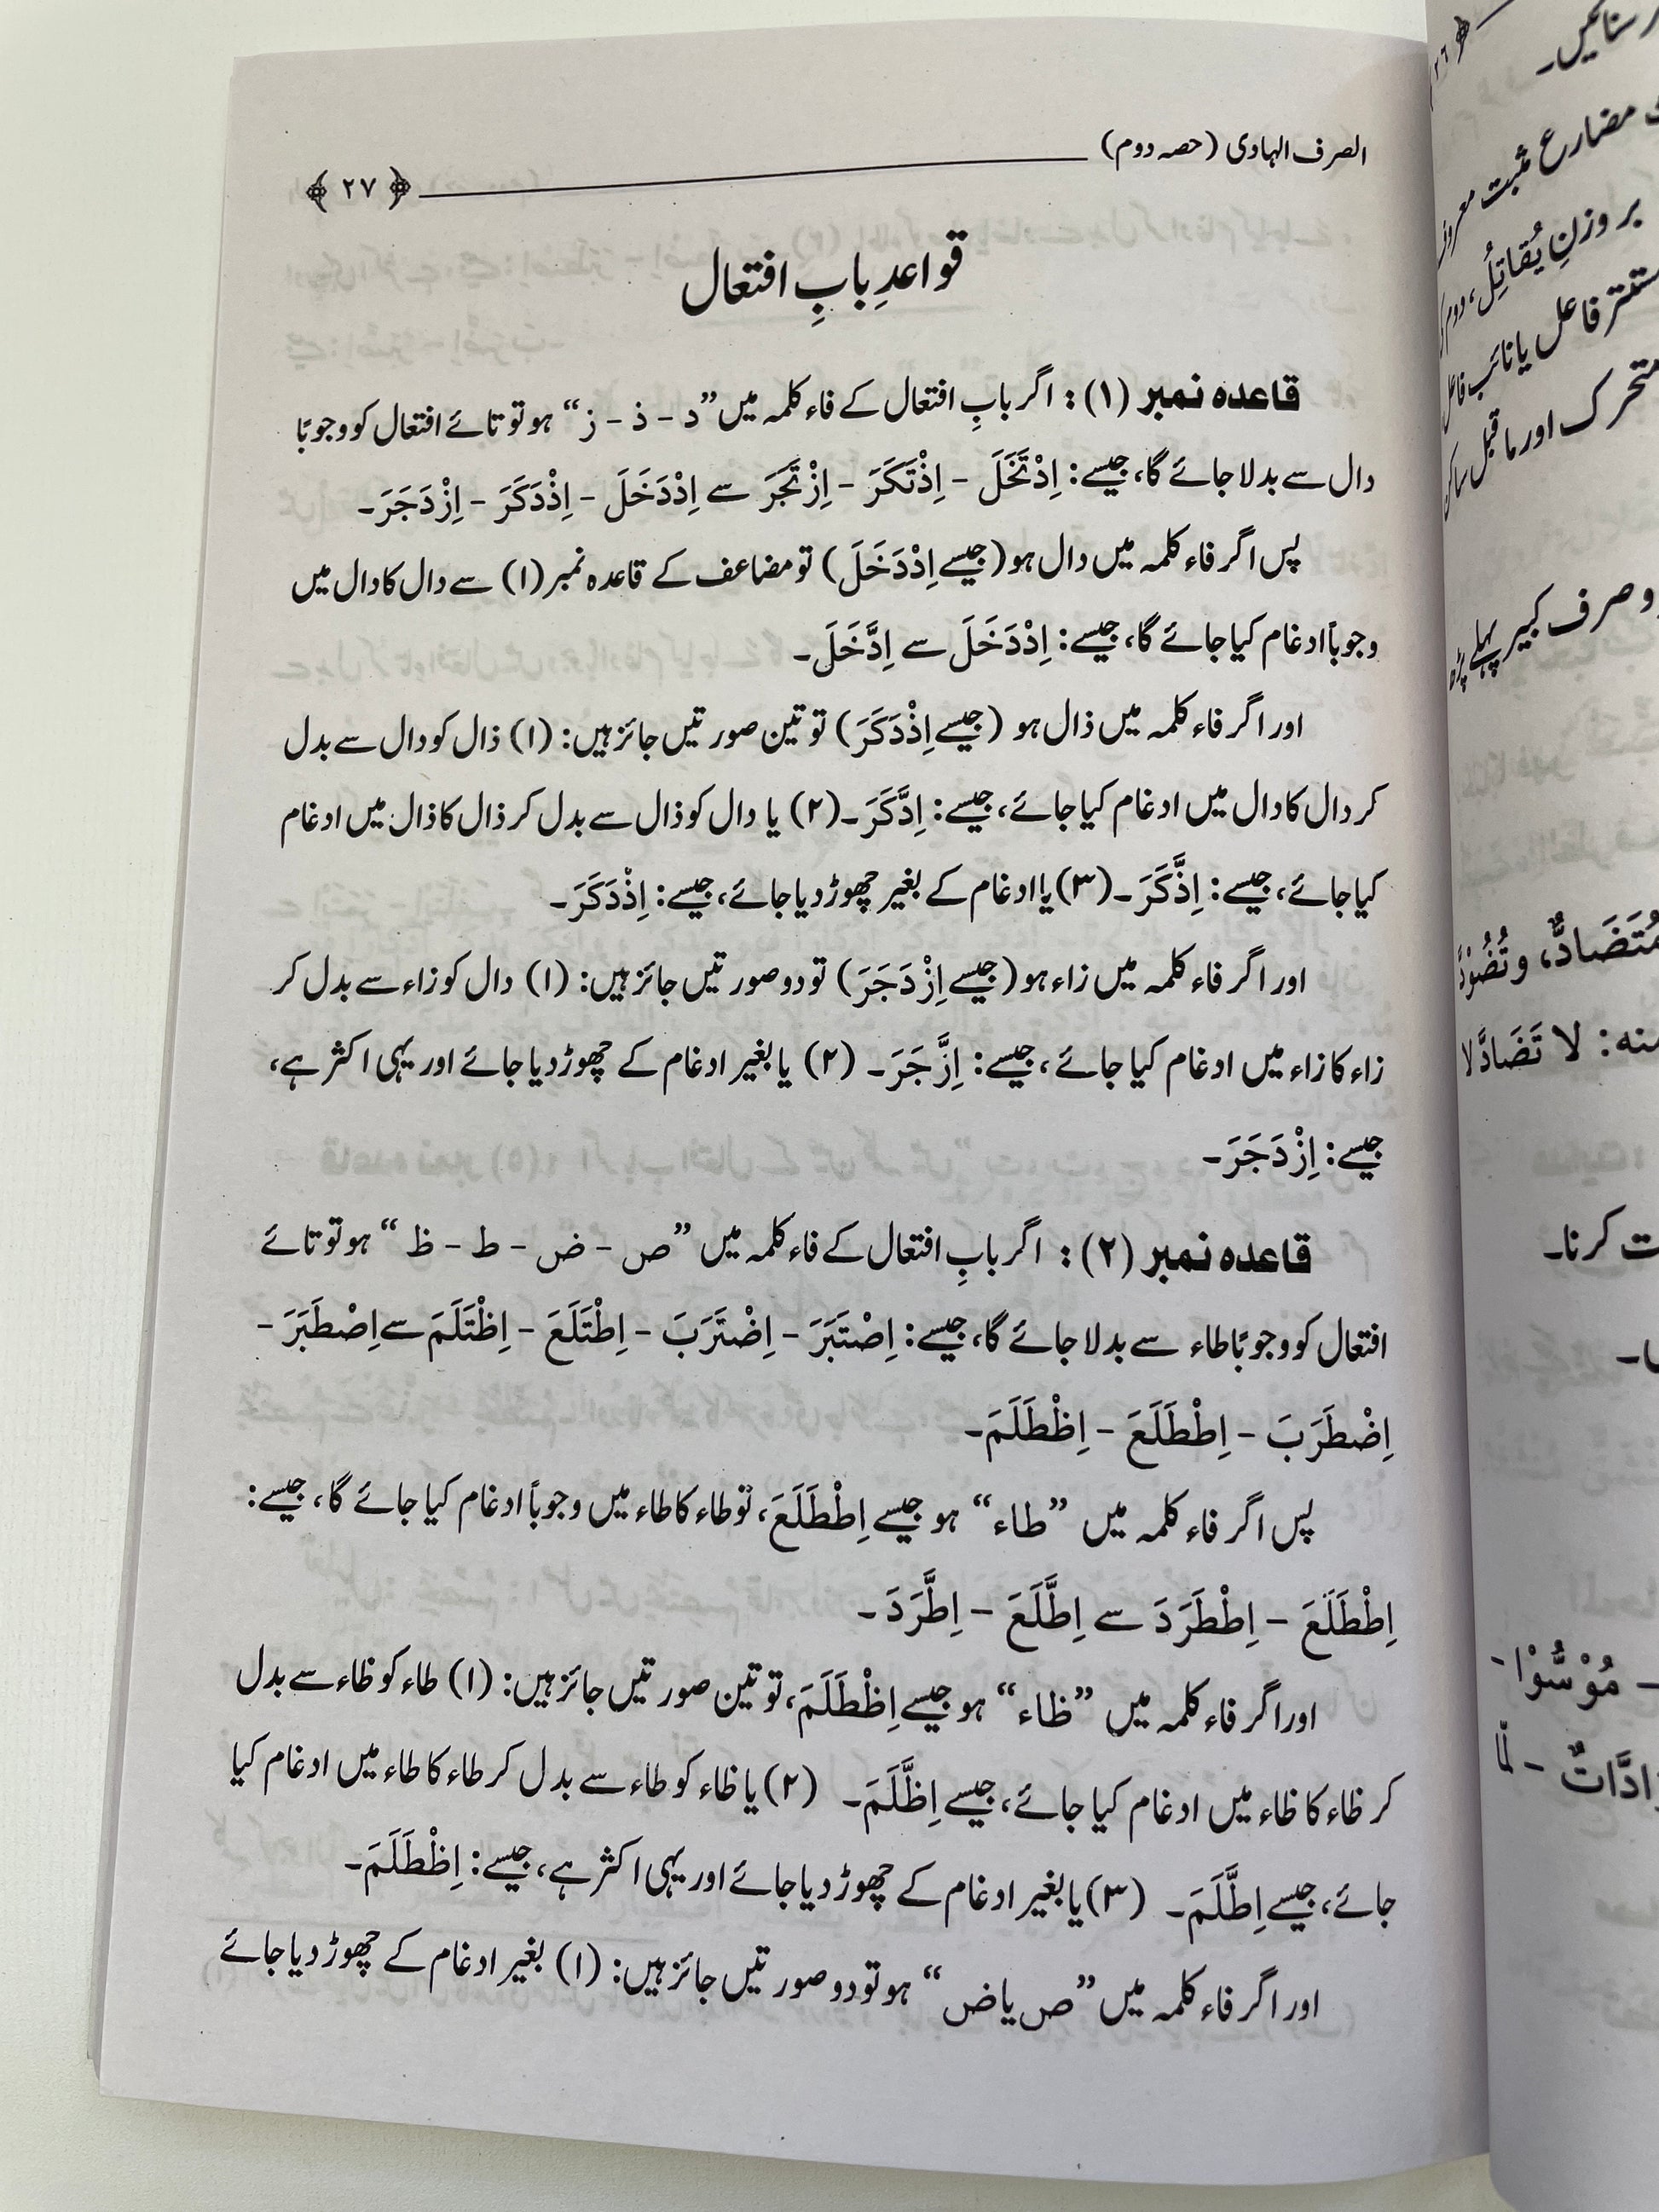 الصرف الہادی (حصہ دوم)
﴿ ۲۷ ﴾
قواعدِ بابِ افتعال
قاعدہ نمبر (۱) : اگر بابِ افتعال کے فاء کلمہ میں ”د - ذ - ز“ ہو تو تائے افتعال کو وجوبًا
دال سے بدلا جائے گا، جیسے: اِدْتَخَلَ - اِذْتَكَرَ - اِزْتَجَرَ سے اِدْدَخَلَ - اِذْدَكَرَ - اِزْدَجَرَ۔
پس اگر فاء کلمہ میں دال ہو (جیسے اِدْدَخَلَ) تو مضاعف کے قاعدہ نمبر (۱) سے دال کا دال میں
وجوباً ادغام کیا جائے گا، جیسے: اِدْدَخَلَ سے اِدَّخَلَ۔
اور اگر فاء کلمہ میں ذال ہو (جیسے اِذْدَكَرَ) تو تین صورتیں جائز ہیں: (۱) ذال کو دال سے بدل
کر دال کا دال میں ادغام کیا جائے، جیسے: اِدَّكَرَ۔ (۲) یا دال کو ذال سے بدل کر ذال کا ذال میں ادغام
کیا جائے، جیسے: اِذَّكَرَ۔ (۳) یا ادغام کے بغیر چھوڑ دیا جائے، جیسے: اِذْدَكَرَ۔
اور اگر فاء کلمہ میں زاء ہو (جیسے اِزْدَجَرَ) تو دو صورتیں جائز ہیں: (۱) دال کو زاء سے بدل کر
زاء کا زاء میں ادغام کیا جائے، جیسے: اِزَّجَرَ۔ (۲) یا بغیر ادغام کے چھوڑ دیا جائے اور یہی اکثر ہے،
جیسے: اِزْدَجَرَ۔
قاعدہ نمبر (۲) : اگر بابِ افتعال کے فاء کلمہ میں ”ص - ض - ط - ظ“ ہو تو تائے
افتعال کو وجوبًا طاء سے بدلا جائے گا، جیسے: اِصْتَبَرَ - اِضْتَرَبَ - اِطْتَلَعَ - اِظْتَلَمَ سے اِصْطَبَرَ -
اِضْطَرَبَ - اِطْطَلَعَ - اِظْطَلَمَ۔
پس اگر فاء کلمہ میں ”طاء“ ہو جیسے اِطْطَلَعَ، تو طاء کا طاء میں وجوباً ادغام کیا جائے گا، جیسے:
اِطْطَلَعَ - اِطْطَرَدَ سے اِطَّلَعَ - اِطَّرَدَ۔
اور اگر فاء کلمہ میں ”ظاء“ ہو جیسے اِظْطَلَمَ، تو تین صورتیں جائز ہیں: (۱) طاء کو ظاء سے بدل
کر ظاء کا ظاء میں ادغام کیا جائے، جیسے اِظَّلَمَ۔ (۲) یا ظاء کو طاء سے بدل کر طاء کا طاء میں ادغام کیا
جائے، جیسے اِطَّلَمَ۔ (۳) یا بغیر ادغام کے چھوڑ دیا جائے اور یہی اکثر ہے، جیسے: اِظْطَلَمَ۔
اور اگر فاء کلمہ میں ”ص یا ض“ ہو تو دو صورتیں جائز ہیں: (۱) بغیر ادغام کے چھوڑ دیا جائے
مضارع مثبت
بروزنِ يُقَاتِلُ، دوم
فاعل یا نائب فاعل
اور ما قبل
و صرف کبیر پہلے
لا تَضَادَّ لا
کرنا۔
- مُوْسُّوْا -